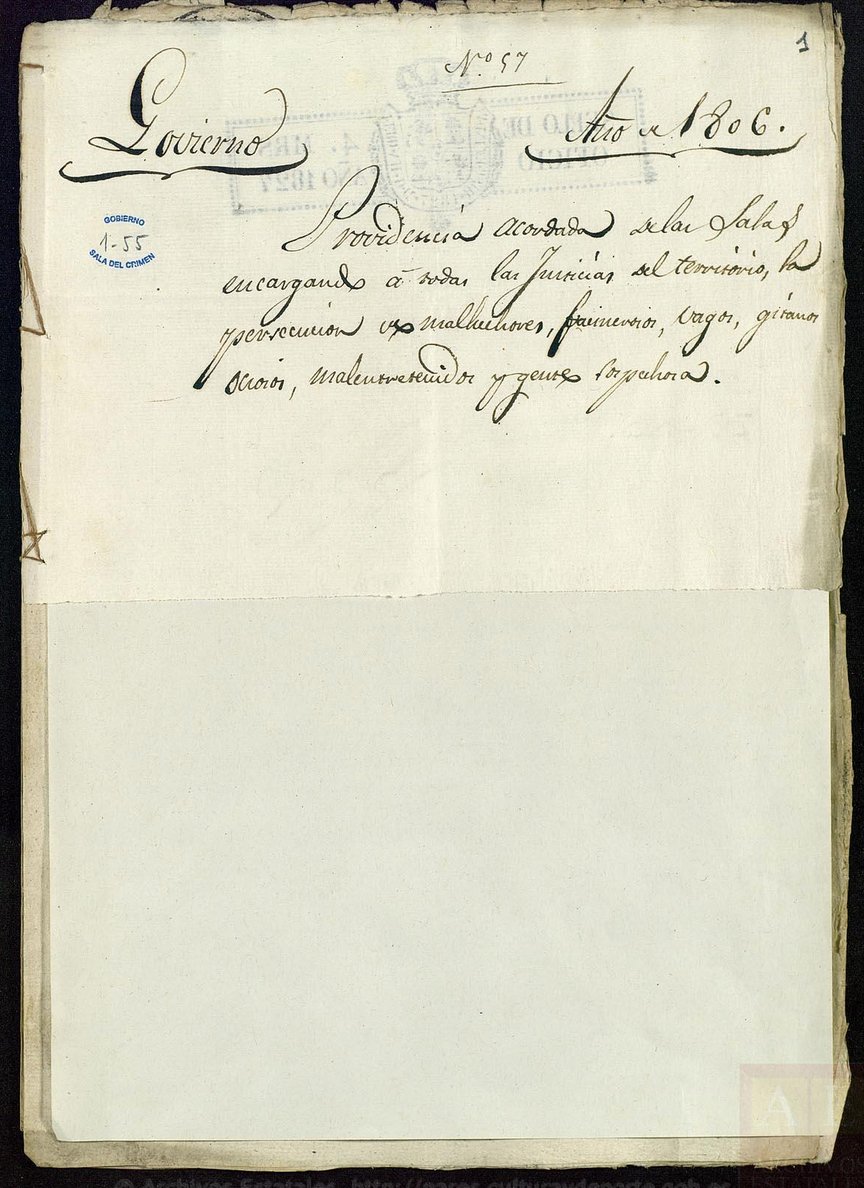 1
Nº 57
Govierno
Año de 1806.
GOBIERNO
1-55
SALA DEL CRIMEN
Providencia acordada de las Salas
encargando à todas las Justicias del territorio, la
persecucion de malhechores, vagos, gitanos
ociosos, malentretenidos y gente sospechosa.
SELLO DE
OFICIO
4. MRS
AÑO 1827
© Archivos Estatales, http://pares.culturaydeporte.gob.es